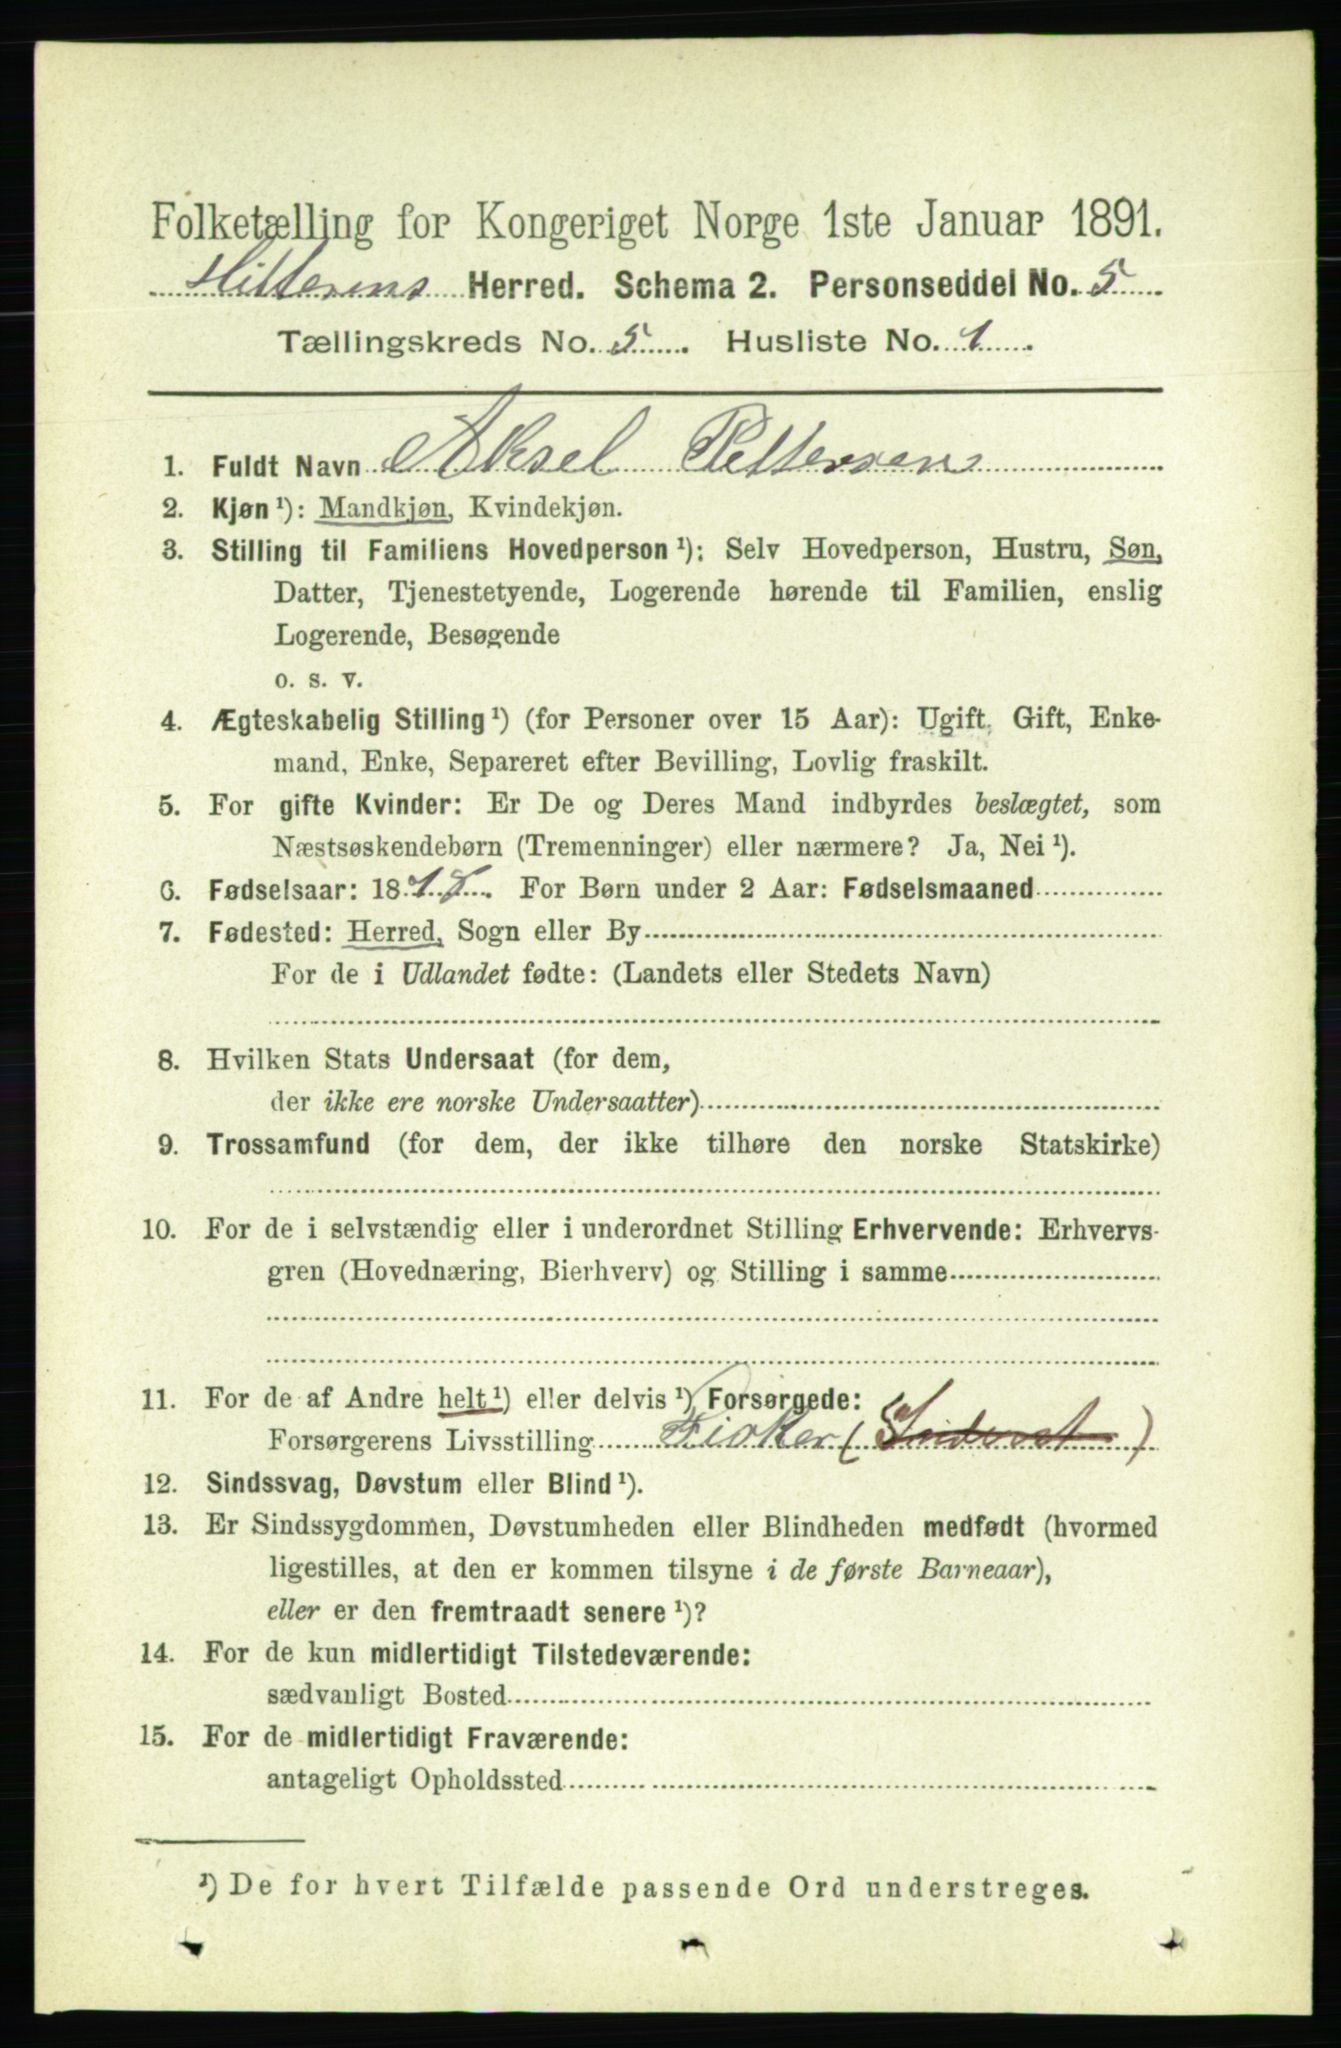 Folketælling for Kongeriget Norge 1ste Januar 1891.
Hitterens Herred. Schema 2. Personseddel No. 5
Tællingskreds No. 5 Husliste No. 1
1. Fuldt Navn Aksel Pettersen
2. Kjøn ¹): Mandkjøn, Kvindekjøn.
3. Stilling til Familiens Hovedperson ¹): Selv Hovedperson, Hustru, Søn,
Datter, Tjenestetyende, Logerende hørende til Familien, enslig
Logerende, Besøgende
o. s. v.
4. Ægteskabelig Stilling ¹) (for Personer over 15 Aar): Ugift, Gift, Enke-
mand, Enke, Separeret efter Bevilling, Lovlig fraskilt.
5. For gifte Kvinder: Er De og Deres Mand indbyrdes beslægtet, som
Næstsøskendebørn (Tremenninger) eller nærmere? Ja, Nei ¹).
6. Fødselsaar: 18 For Børn under 2 Aar: Fødselsmaaned
7. Fødested: Herred, Sogn eller By
For de i Udlandet fødte: (Landets eller Stedets Navn)
8. Hvilken Stats Undersaat (for dem,
der ikke ere norske Undersaatter)
9. Trossamfund (for dem, der ikke tilhøre den norske Statskirke)
10. For de i selvstændig eller i underordnet Stilling Erhvervende: Erhvervs-
gren (Hovednæring, Bierhverv) og Stilling i samme
11. For de af Andre helt ¹) eller delvis ¹) Forsørgede:
Forsørgerens Livsstilling Fisker (Inderst)
12. Sindssvag, Døvstum eller Blind ¹).
13. Er Sindssygdommen, Døvstumheden eller Blindheden medfødt (hvormed
ligestilles, at den er kommen tilsyne i de første Barneaar),
eller er den fremtraadt senere ¹)?
14. For de kun midlertidigt Tilstedeværende:
sædvanligt Bosted
15. For de midlertidigt Fraværende:
antageligt Opholdssted
¹) De for hvert Tilfælde passende Ord understreges.